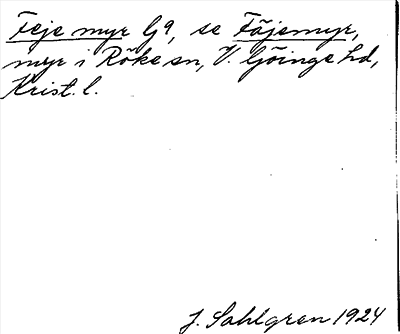 Feje myr G9, se Fäjemyr,
myr i Röke sn, V. Göinge hd,
Krist. l.
J. Sahlgren 1924